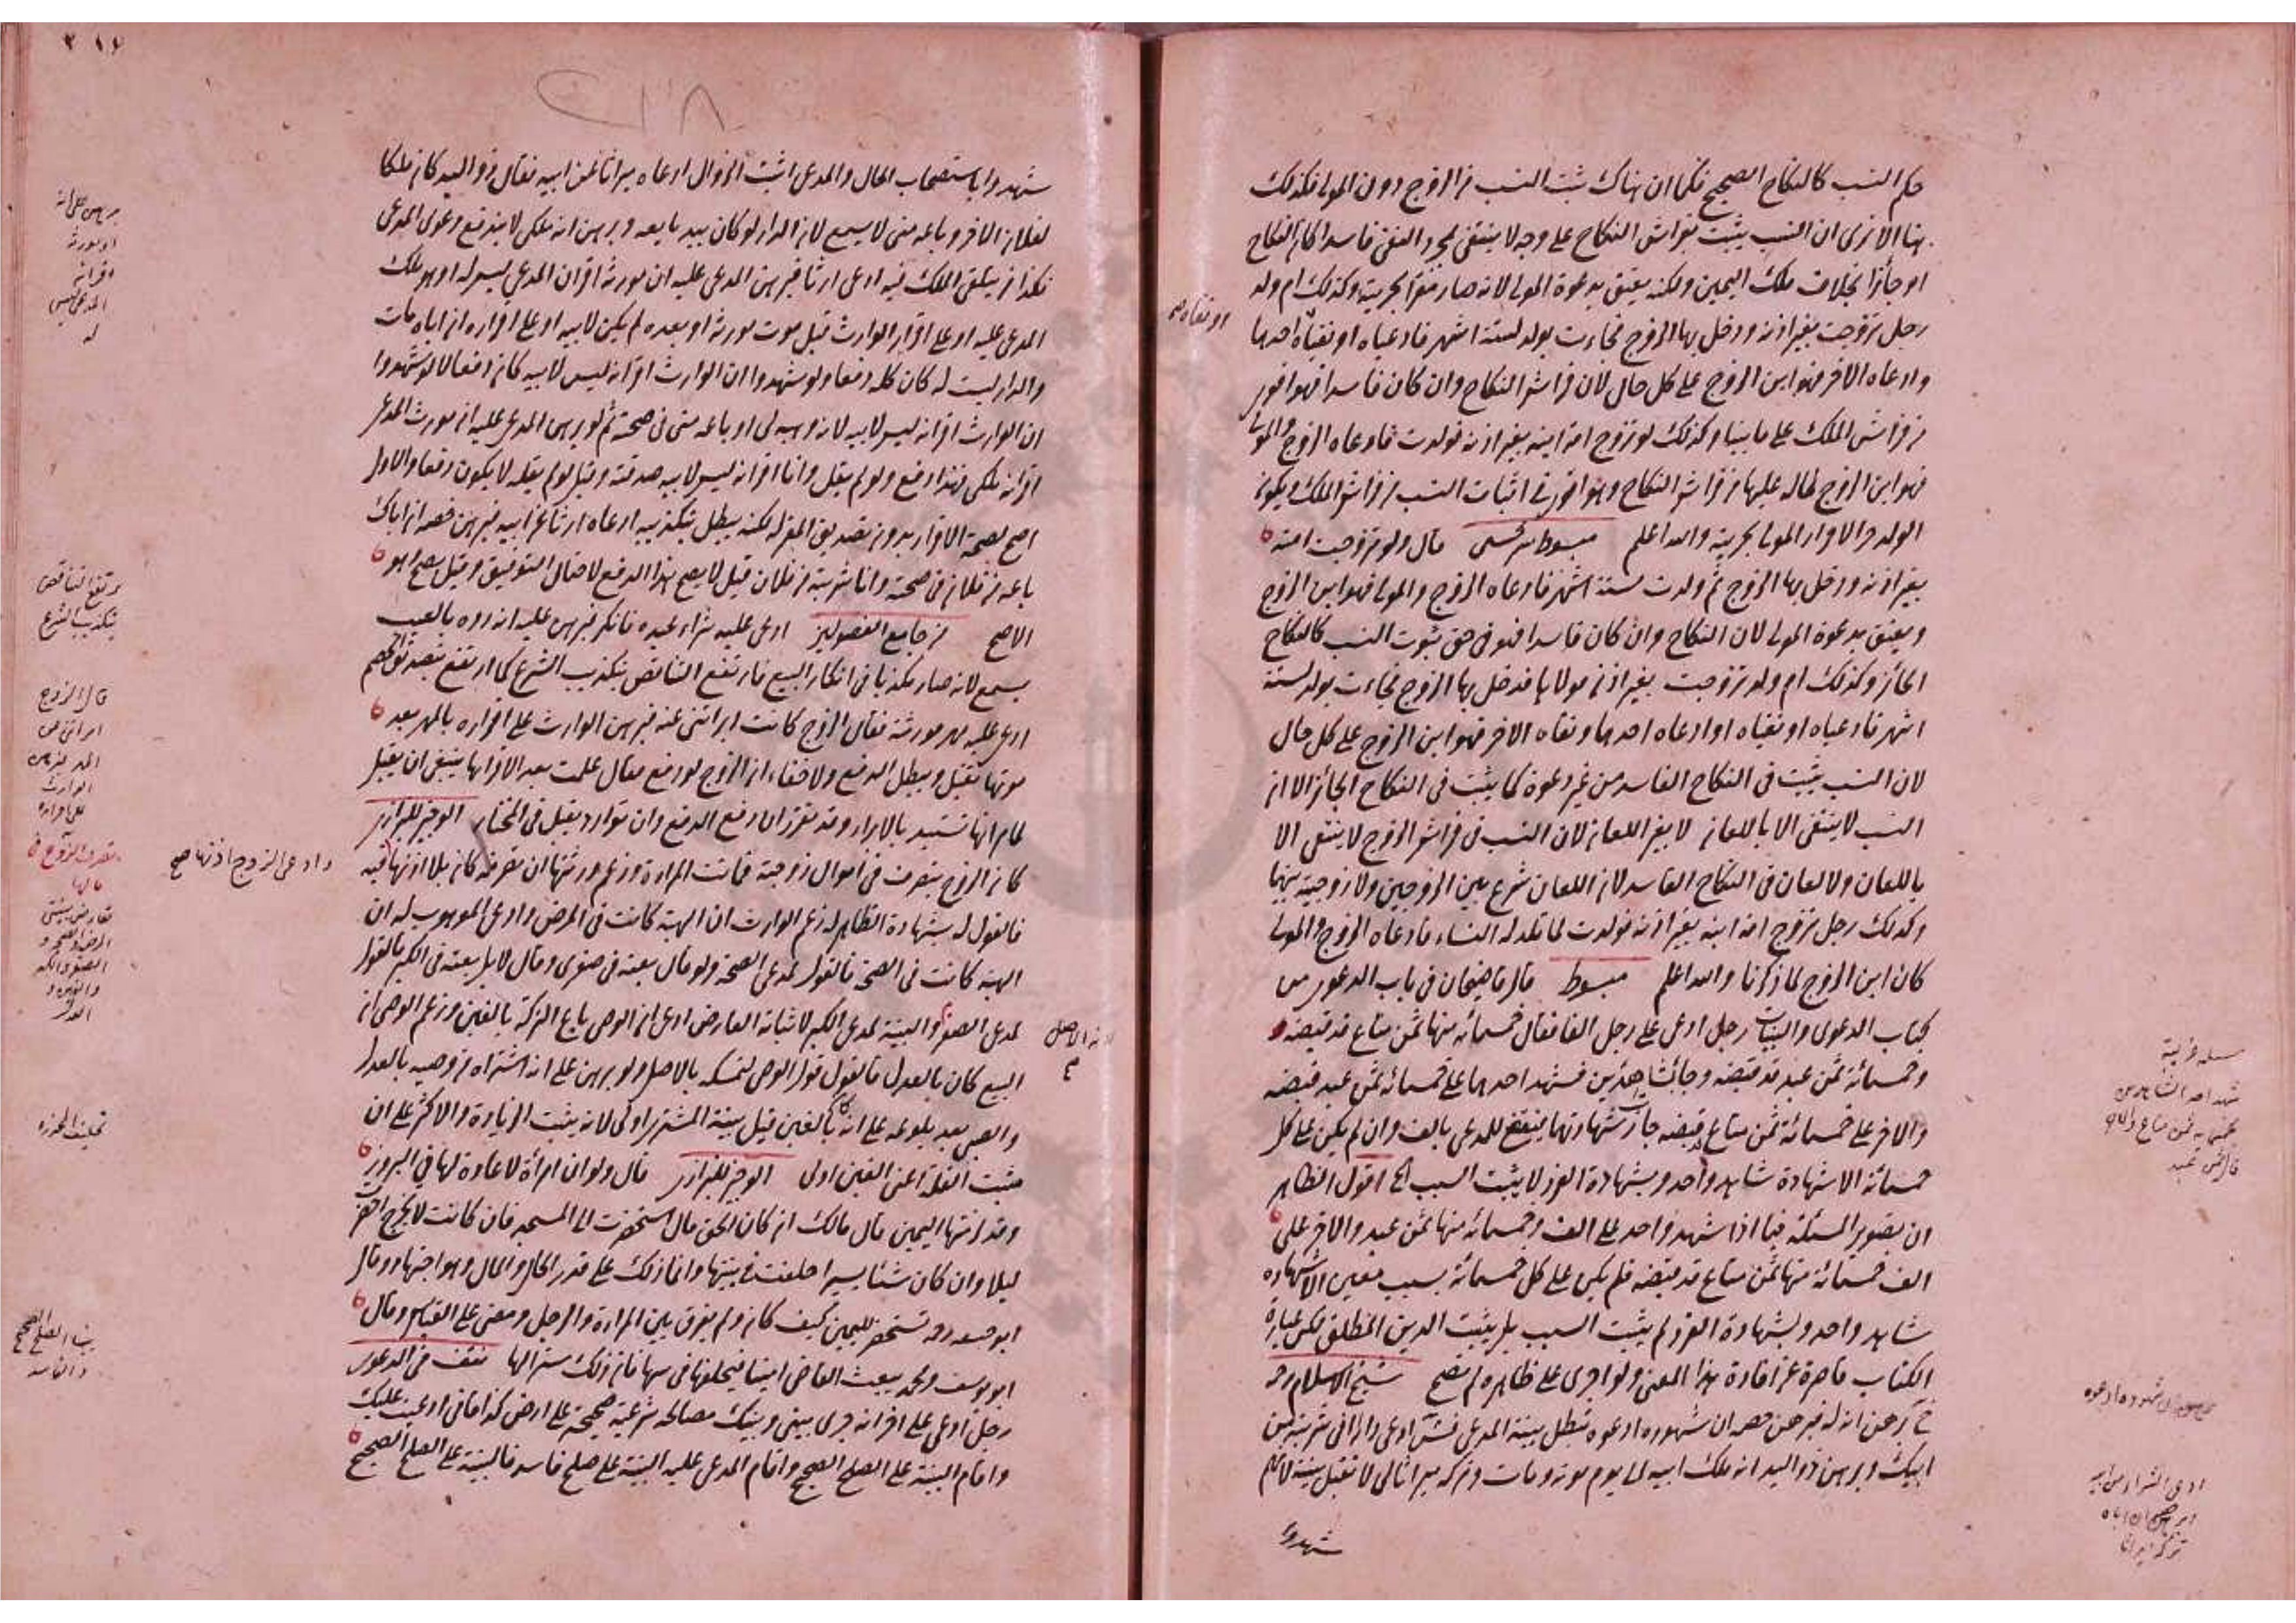 حكم النسب كالنكاح الصحيح فكما ان هناك ثبت النسب من الزوج دون المولى فكذلك
هنا الا ترى ان النسب يثبت بفراش النكاح على وجه لا ينتفى بمجرد النفى فاسدا كان النكاح
او جائزا بخلاف ملك اليمين ولكنه يعتق بدعوة المولى لانه صار مقرا بحريته وكذلك ام ولد
رجل تزوجت بغير اذنه ودخل بها الزوج فجاءت بولد لستة اشهر فادعياه او نفياه احدهما
او نفاه صح
وادعاه الاخر فهو ابن الزوج على كل حال لان فراش النكاح وان كان فاسدا فهو اقوى
من فراش الملك على ما بينا وكذلك لو تزوج امة ابنه بغير اذنه فولدت فادعاه الزوج والمولى
فهو ابن الزوج لما له عليها من فراش النكاح وهو اقوى فى اثبات النسب من فراش الملك ويكون
الولد حرا لاقرار المولى بحريته والله اعلم مبسوط سرخسى قال ولو تزوجت امته
بغير اذنه ودخل بها الزوج ثم ولدت لستة اشهر فادعاه الزوج والمولى فهو ابن الزوج
ويعتق بدعوة المولى لان النكاح وان كان فاسدا فهو فى حق ثبوت النسب كالنكاح
الجائز وكذلك ام ولد تزوجت بغير اذن مولاها فدخل بها الزوج فجاءت بولد لستة
اشهر فادعياه او نفياه او ادعاه احدهما ونفاه الاخر فهو ابن الزوج على كل حال
لان النسب يثبت فى النكاح الفاسد من غير دعوة كما يثبت فى النكاح الجائز الا ان
النسب لا ينتفى الا باللعان لا بغير اللعان لان النسب فى فراش الزوج لا ينتفى الا
باللعان ولا لعان فى النكاح الفاسد لان اللعان شرع بين الزوجين ولا زوجية بينهما
وكذلك رجل تزوج امة ابنه بغير اذنه فولدت لما تلد له النساء فادعاه الزوج والمولى
كان ابن الزوج لما ذكرنا والله اعلم مبسوط قال قاضيخان فى باب الدعوى من
كتاب الدعوى والبينات رجل ادعى على رجل الفا فقال خمسمائة منها ثمن متاع قد قبضه
وخمسمائة ثمن عبد قد قبضه وجاء بشاهدين فشهد احدهما على خمسمائة ثمن عبد قبضه
والاخر على خمسمائة ثمن متاع قبضه جازت شهادتهما فيقضى للمدعى بالف وان لم يكن على كل
خمسمائة الا شهادة شاهد واحد وبشهادة الفرد لا يثبت السبب اقول الظاهر
ان تصوير المسئلة فيما اذا شهد واحد على الف وخمسمائة منها ثمن عبد والاخر على
الف خمسمائة منها ثمن متاع قد قبضه فلم يكن على كل خمسمائة بسبب معين الا شهادة
شاهد واحد وبشهادة الفرد لم يثبت السبب بل يثبت الدين المطلق لكن عبارة
الكتاب قاصرة عن افادة هذا المعنى ولو اجرى على ظاهره لم يتضح شيخ الاسلام رحمه
برهن انه له فبرهن خصمه ان شهوده ادعوه تبطل بينة المدعى ادعى دارا انى شريته من
ابيك وبرهن ذو اليد انه ملك ابيه الى يوم موته ومات وتركه ميراثا لى لا تقبل بينته لانهم
شهدوا
مسئلة غريبة
شهد احد الشاهدين
بخمسمائة ثمن متاع والاخر
ثمن عبد
ادعى الشراء من ابيه
ان اباه
تركه ميراثا
٢١٦
شهدوا باستصحاب الحال والمدعى اثبت الزوال ادعاه ميراثا عن ابيه فقال ذو اليد كان ملكا
لفلان الاخر وباعه منى لا يسمع لان الدار لو كان بيد بايعه وبرهن انه ملكى لا يندفع دعوى المدعى
فكذا من يتلقى الملك فيه ادعى ارثا فبرهن المدعى عليه ان مورثه اقر ان المدعى ليس له او هو ملك
المدعى عليه او على اقرار الوارث قبل موت مورثه او بعده لم يكن لابيه او على اقراره ان اباه مات
والدار ليست له كان كله دفعا ولو شهدوا ان الوارث اقر انه ليس لابيه كان دفعا لا لو شهدوا
ان الوارث اقر انه ليس لابيه لانه وهبه لى او باعه منى فى صحته ثم لو برهن المدعى عليه ان مورث المدعى
اقر انه ملكى فهذا دفع ولو لم يقل وانا اقر انه ليس لابيه صدقته وقيل لو لم يقله لا يكون دفعا والاول
اصح لصحة الاقرار بدون تصديق المقر له لكنه يبطل بتكذيبه ادعاه ارثا عن ابيه فبرهن خصمه ان اباك
باعه من فلان فى صحته وانا شريته من فلان قيل لا يصح هذا الدفع لاحتمال التوفيق وقيل يصح هو
الاصح من جامع الفصولين ادعى عليه شراء عبده فانكر فبرهن عليه انه رده بالعيب
يسمع لانه صار مكذبا فى انكار البيع فارتفع التناقض بتكذيب الشرع كما ارتفع بتصديق الخصم
ادعى عليه مهر مورثته فقال الزوج كانت ابرأتنى عنه فبرهن الوارث على اقراره بالمهر بعد
موتها تقبل ويبطل الدفع ولا خفاء ان الزوج لو دفع فقال علمت بعد الاقرار ينبغى ان يقبل
لما انها تستبد بالابراء وقد تقرر ان دفع الدفع وان توارد يقبل فى المختار الوجيز للبزازى
كان الزوج يتصرف فى اموال زوجته فماتت المراءة وزعم ورثتها ان تصرفه كان بلا اذنها فيه
وادعى الزوج اذنها صح
فالقول له بشهادة الظاهر له زعم الوارث ان الهبة كانت فى المرض وادعى الموهوب له ان
الهبة كانت فى الصحة فالقول لمدعى الصحة ولو قال بعته فى صغرى وقال لا بل بعته فى الكبر فالقول
لمدعى الصغر والبينة لمدعى الكبر لاثباته العارض ادعى ان الوصى باع التركة بالغبن وزعم الوصى ان
البيع كان بالعدل فالقول قول الوصى لتمسكه بالاصل ولو برهن على انه اشتراه من وصيه بالعدل
والصبى بعد بلوغه على انه كان بالغبن قيل بينة المشترى اولى لانه يثبت الزيادة والاكثر على ان
مثبت القلة اعنى الغبن اولى الوجيز للبزازى قال ولو ان امرأة لا عادة لها فى البروز
وقد لزمتها اليمين قال مالك ان كان الحق مال استحضرت الى المسجد فان كانت لا تخرج احضر
ليلا وان كان شئا يسيرا احلفت فى بيتها وانما ذلك على قدر الحال والمال وهو اجتهاد وقال
ابو حنيفه رحمه تستحضر لليمين كيف كان ولم يفرق بين المراءة والرجل ومضى على القياس وقال
ابو يوسف ومحمد يبعث القاضى امينا فيحلفها فى بيتها فان ذلك ستر الها نتف فى الدعوى
رجل ادعى على اخر انه جرى بينى وبينك مصالحه شرعية صحيحة على ارض كذا مما فى ادعيت عليك
واقام البينة على الصلح الصحيح واقام المدعى عليه البينة على صلح فاسد فالبينة على الصلح الصحيح
يرتفع التناقض
بتكذيب الشرع
قال الزوج
ابرأتنى من
المهر فبرهن
الوارث
على اقراره
تصرف الزوج فى
مالها
تحليف المخدرة
بينة الصلح الصحيح
والفاسد